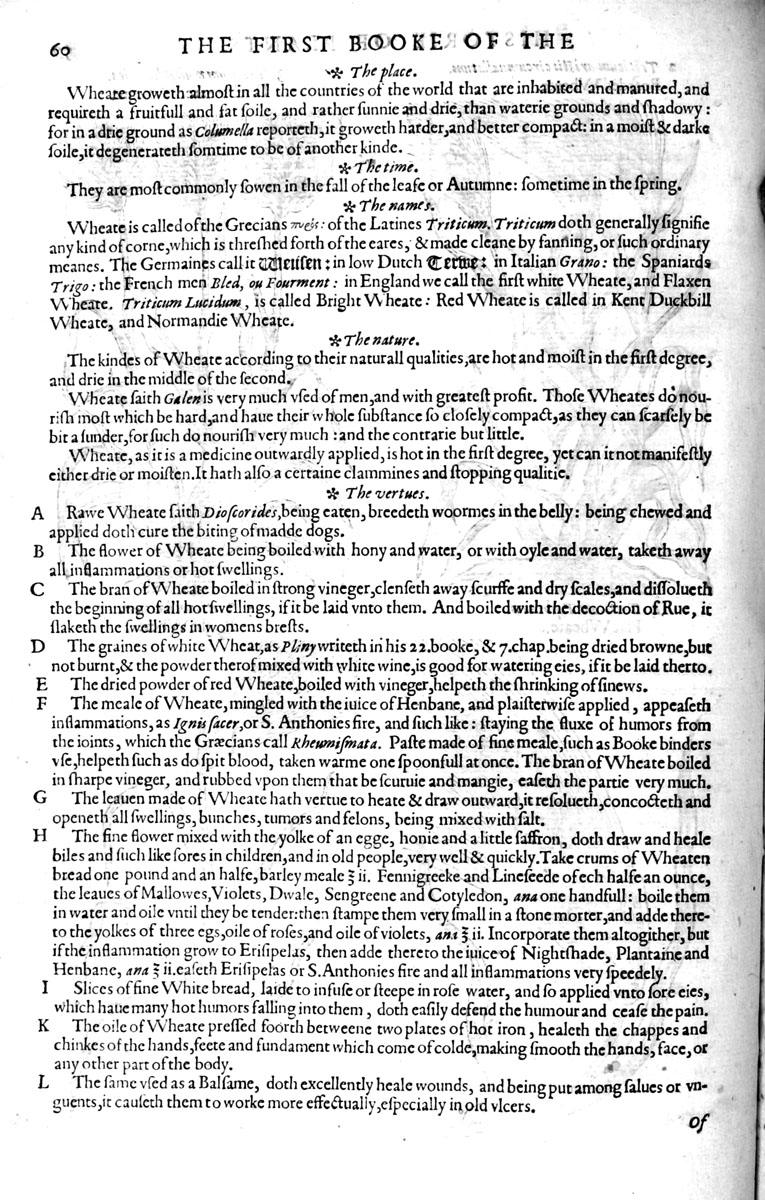 60 THE FIRST BOOKE OF THE
❧ The place.
Wheate groweth almoſt in all the countries of the world that are inhabited and manured, and
requireth a fruitfull and fat ſoile, and rather ſunnie and drie, than waterie grounds and ſhadowy:
for in a drie ground as Columella reporteth, it groweth harder, and better compact: in a moiſt & darke
ſoile, it degenerateth ſomtime to be of another kinde.
✻ The time.
They are moſt commonly ſowen in the fall of the leafe or Autumne: ſometime in the ſpring.
✻ The names.
Wheate is called of the Grecians of the Latines Triticum. Triticum doth generally ſignifie
any kind of corne, which is threſhed forth of the eares, & made cleane by fanning, or ſuch ordinary
meanes. The Germaines call it Weyſen: in low Dutch Terwe: in Italian Grano: the Spaniards
Trigo: the French men Bled, ou Fourment: in England we call the firſt white Wheate, and Flaxen
Wheate. Triticum Lucidum, is called Bright Wheate: Red Wheate is called in Kent Duckbill
Wheate, and Normandie Wheate.
✻ The nature.
The kindes of Wheate according to their naturall qualities, are hot and moiſt in the firſt degree,
and drie in the middle of the ſecond.
Wheate ſaith Galen is very much vſed of men, and with greateſt profit. Thoſe Wheates do nou-
riſh moſt which be hard, and haue their whole ſubſtance ſo cloſely compact, as they can ſcarſely be
bit aſunder, for ſuch do nouriſh very much: and the contrarie but little.
Wheate, as it is a medicine outwardly applied, is hot in the firſt degree, yet can it not manifeſtly
either drie or moiſten. It hath alſo a certaine clammines and ſtopping qualitie.
✻ The vertues.
A Rawe Wheate ſaith Dioſcorides, being eaten, breedeth woormes in the belly: being chewed and
applied doth cure the biting of madde dogs.
B The flower of Wheate being boiled with hony and water, or with oyle and water, taketh away
all inflammations or hot ſwellings.
C The bran of Wheate boiled in ſtrong vineger, clenſeth away ſcurffe and dry ſcales, and diſſolueth
the beginning of all hot ſwellings, if it be laid vnto them. And boiled with the decoction of Rue, it
ſlaketh the ſwellings in womens breſts.
D The graines of white Wheat, as Pliny writeth in his 22. booke, & 7. chap. being dried browne, but
not burnt, & the powder therof mixed with white wine, is good for watering eies, if it be laid therto.
E The dried powder of red Wheate, boiled with vineger, helpeth the ſhrinking of ſinews.
F The meale of Wheate, mingled with the iuice of Henbane, and plaiſterwiſe applied, appeaſeth
inflammations, as Ignis ſacer, or S. Anthonies fire, and ſuch like: ſtaying the fluxe of humors from
the ioints, which the Græcians call Rheumiſmata. Paſte made of fine meale, ſuch as Booke binders
vſe, helpeth ſuch as do ſpit blood, taken warme one ſpoonfull at once. The bran of Wheate boiled
in ſharpe vineger, and rubbed vpon them that be ſcuruie and mangie, eaſeth the partie very much.
G The leauen made of Wheate hath vertue to heate & draw outward, it reſolueth, concocteth and
openeth all ſwellings, bunches, tumors and felons, being mixed with ſalt.
H The fine flower mixed with the yolke of an egge, honie and a little ſaffron, doth draw and heale
biles and ſuch like ſores in children, and in old people, very well & quickly. Take crums of Wheaten
bread one pound and an halfe, barley meale ℥ ii. Fennigreeke and Lineſeede of ech halfe an ounce,
the leaues of Mallowes, Violets, Dwale, Sengreene and Cotyledon, ana one handfull: boile them
in water and oile vntil they be tender: then ſtampe them very ſmall in a ſtone morter, and adde there-
to the yolkes of three egs, oile of roſes, and oile of violets, ana ℥ ii. Incorporate them altogither, but
if the inflammation grow to Eriſipelas, then adde thereto the iuice of Nightſhade, Plantaine and
Henbane, ana ℥ ii. eaſeth Eriſipelas or S. Anthonies fire and all inflammations very ſpeedely.
I Slices of fine White bread, laide to infuſe or ſteepe in roſe water, and ſo applied vnto ſore eies,
which haue many hot humors falling into them, doth eaſily defend the humour and ceaſe the pain.
K The oile of Wheate preſſed foorth betweene two plates of hot iron, healeth the chappes and
chinkes of the hands, feete and fundament which come of colde, making ſmooth the hands, face, or
any other part of the body.
L The ſame vſed as a Balſame, doth excellently heale wounds, and being put among ſalues or vn-
guents, it cauſeth them to worke more effectually, eſpecially in old vlcers.
Of